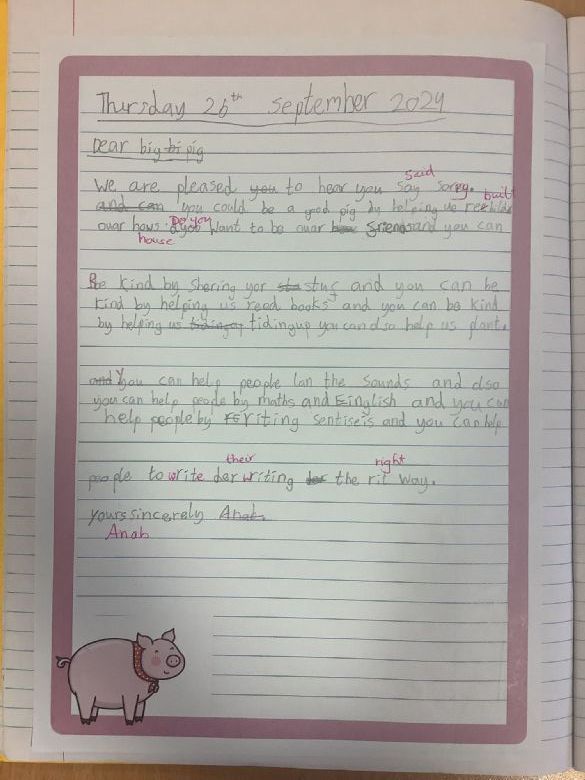 Thursday 26th September 2024
Dear big bi pig
We are pleased you to hear you say sorry.
said
built
and can you could be a good pig by helping us rebild
Do you
ouar hows. d you want to be ouar friend and you can
house
Be kind by sharing yor stuf and you can be
kind by helping us read books and you can be kind
by helping us tidingup you can also help us plant.
and You can help people lan the sounds and also
you can help peode by maths and Einglish and you can
help people by riting sentiseis and you can help
their
right
people to write der writing the rit way.
yours sincerely Anab.
Anab